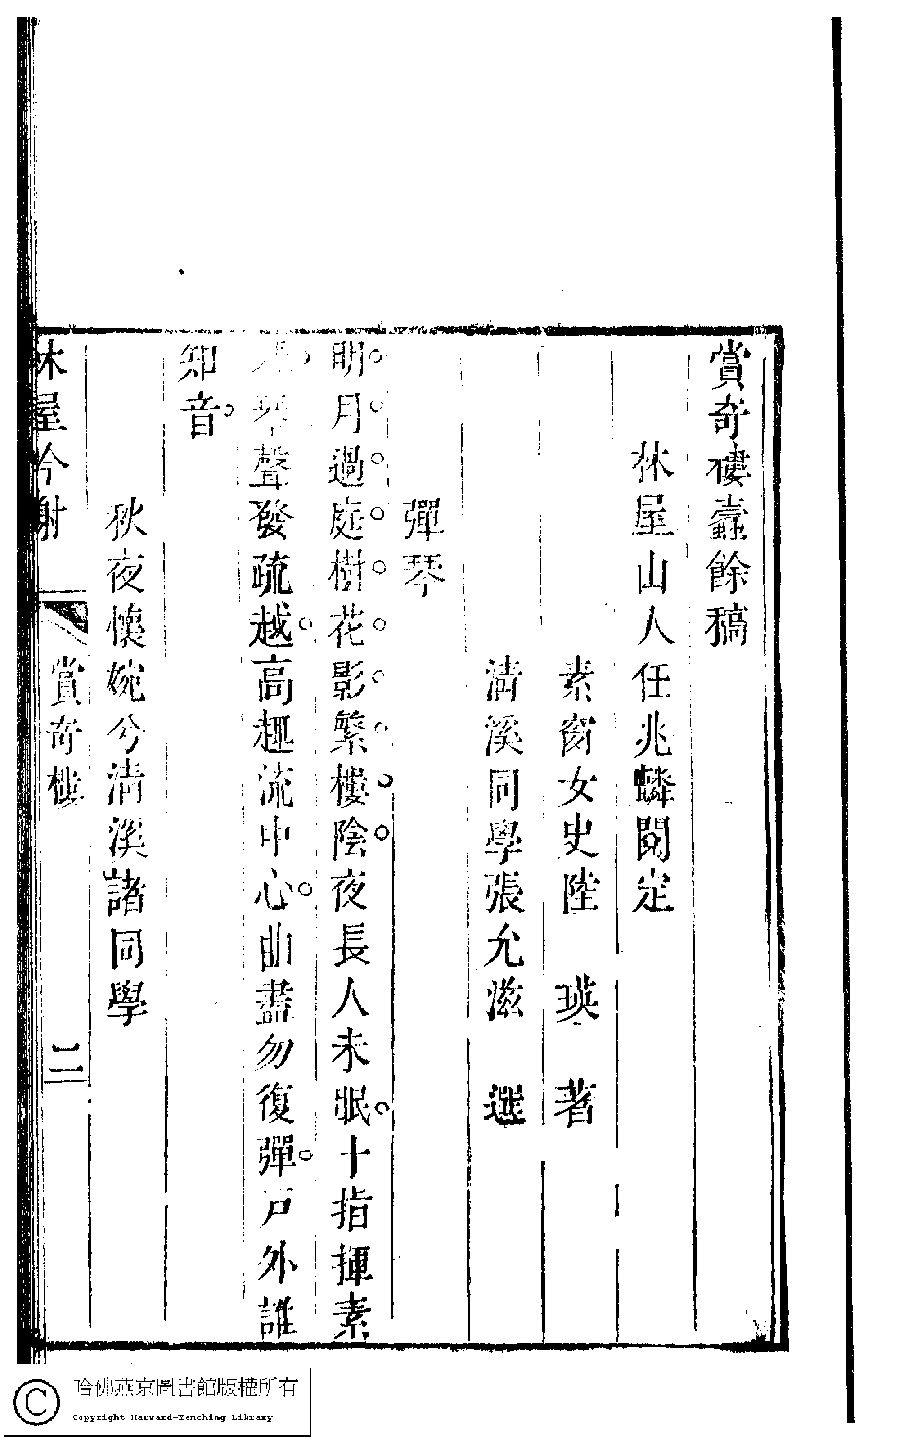 賞奇樓蠹餘稿
林屋山人任兆麟閱定
素窗女史陸 瑛 著
清溪同學張允滋 選
彈琴
明月過庭樹花影繁樓陰夜長人未眠十指揮素
琴聲發疏越高趣流中心曲盡勿復彈戶外誰
知音
秋夜懷婉兮清溪諸同學
林屋吟榭
賞奇樓
二
哈佛燕京圖書館版權所有
Copyright Harvard-Yenching Library